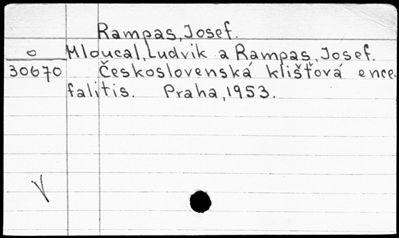 Rampas, Josef.
o Mloucal, Ludvik a Rampas, Josef.
30670 Československá klišťová ence
falitis. Praha, 1953.
V